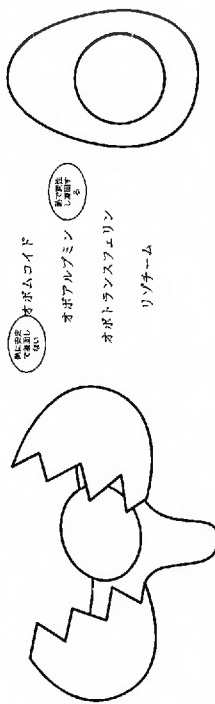 熱に安定
で凝固し
ない
オボムコイド
オボアルブミン
熱で変性
し凝固す
る
オボトランスフェリン
リゾチーム